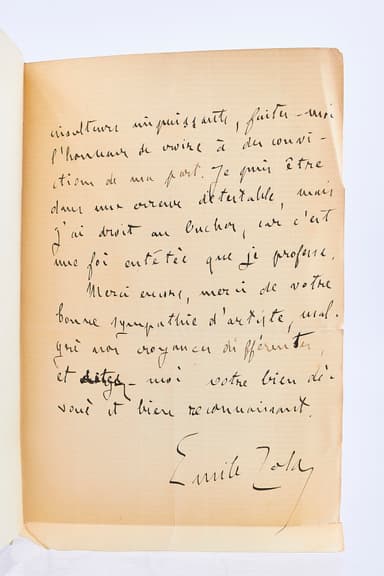 insulteurs impuissants, faites-moi
l'honneur de croire à des convi-
ctions de ma part. Je puis être
dans une erreur détestable, mais
j'ai droit au bucher, car c'est
une foi entêtée que je professe.
Merci encore, merci de votre
bonne sympathie d'artiste, mal-
gré nos croyances différentes,
et - moi votre bien dé-
voué et bien reconnaissant.
Emile Zola